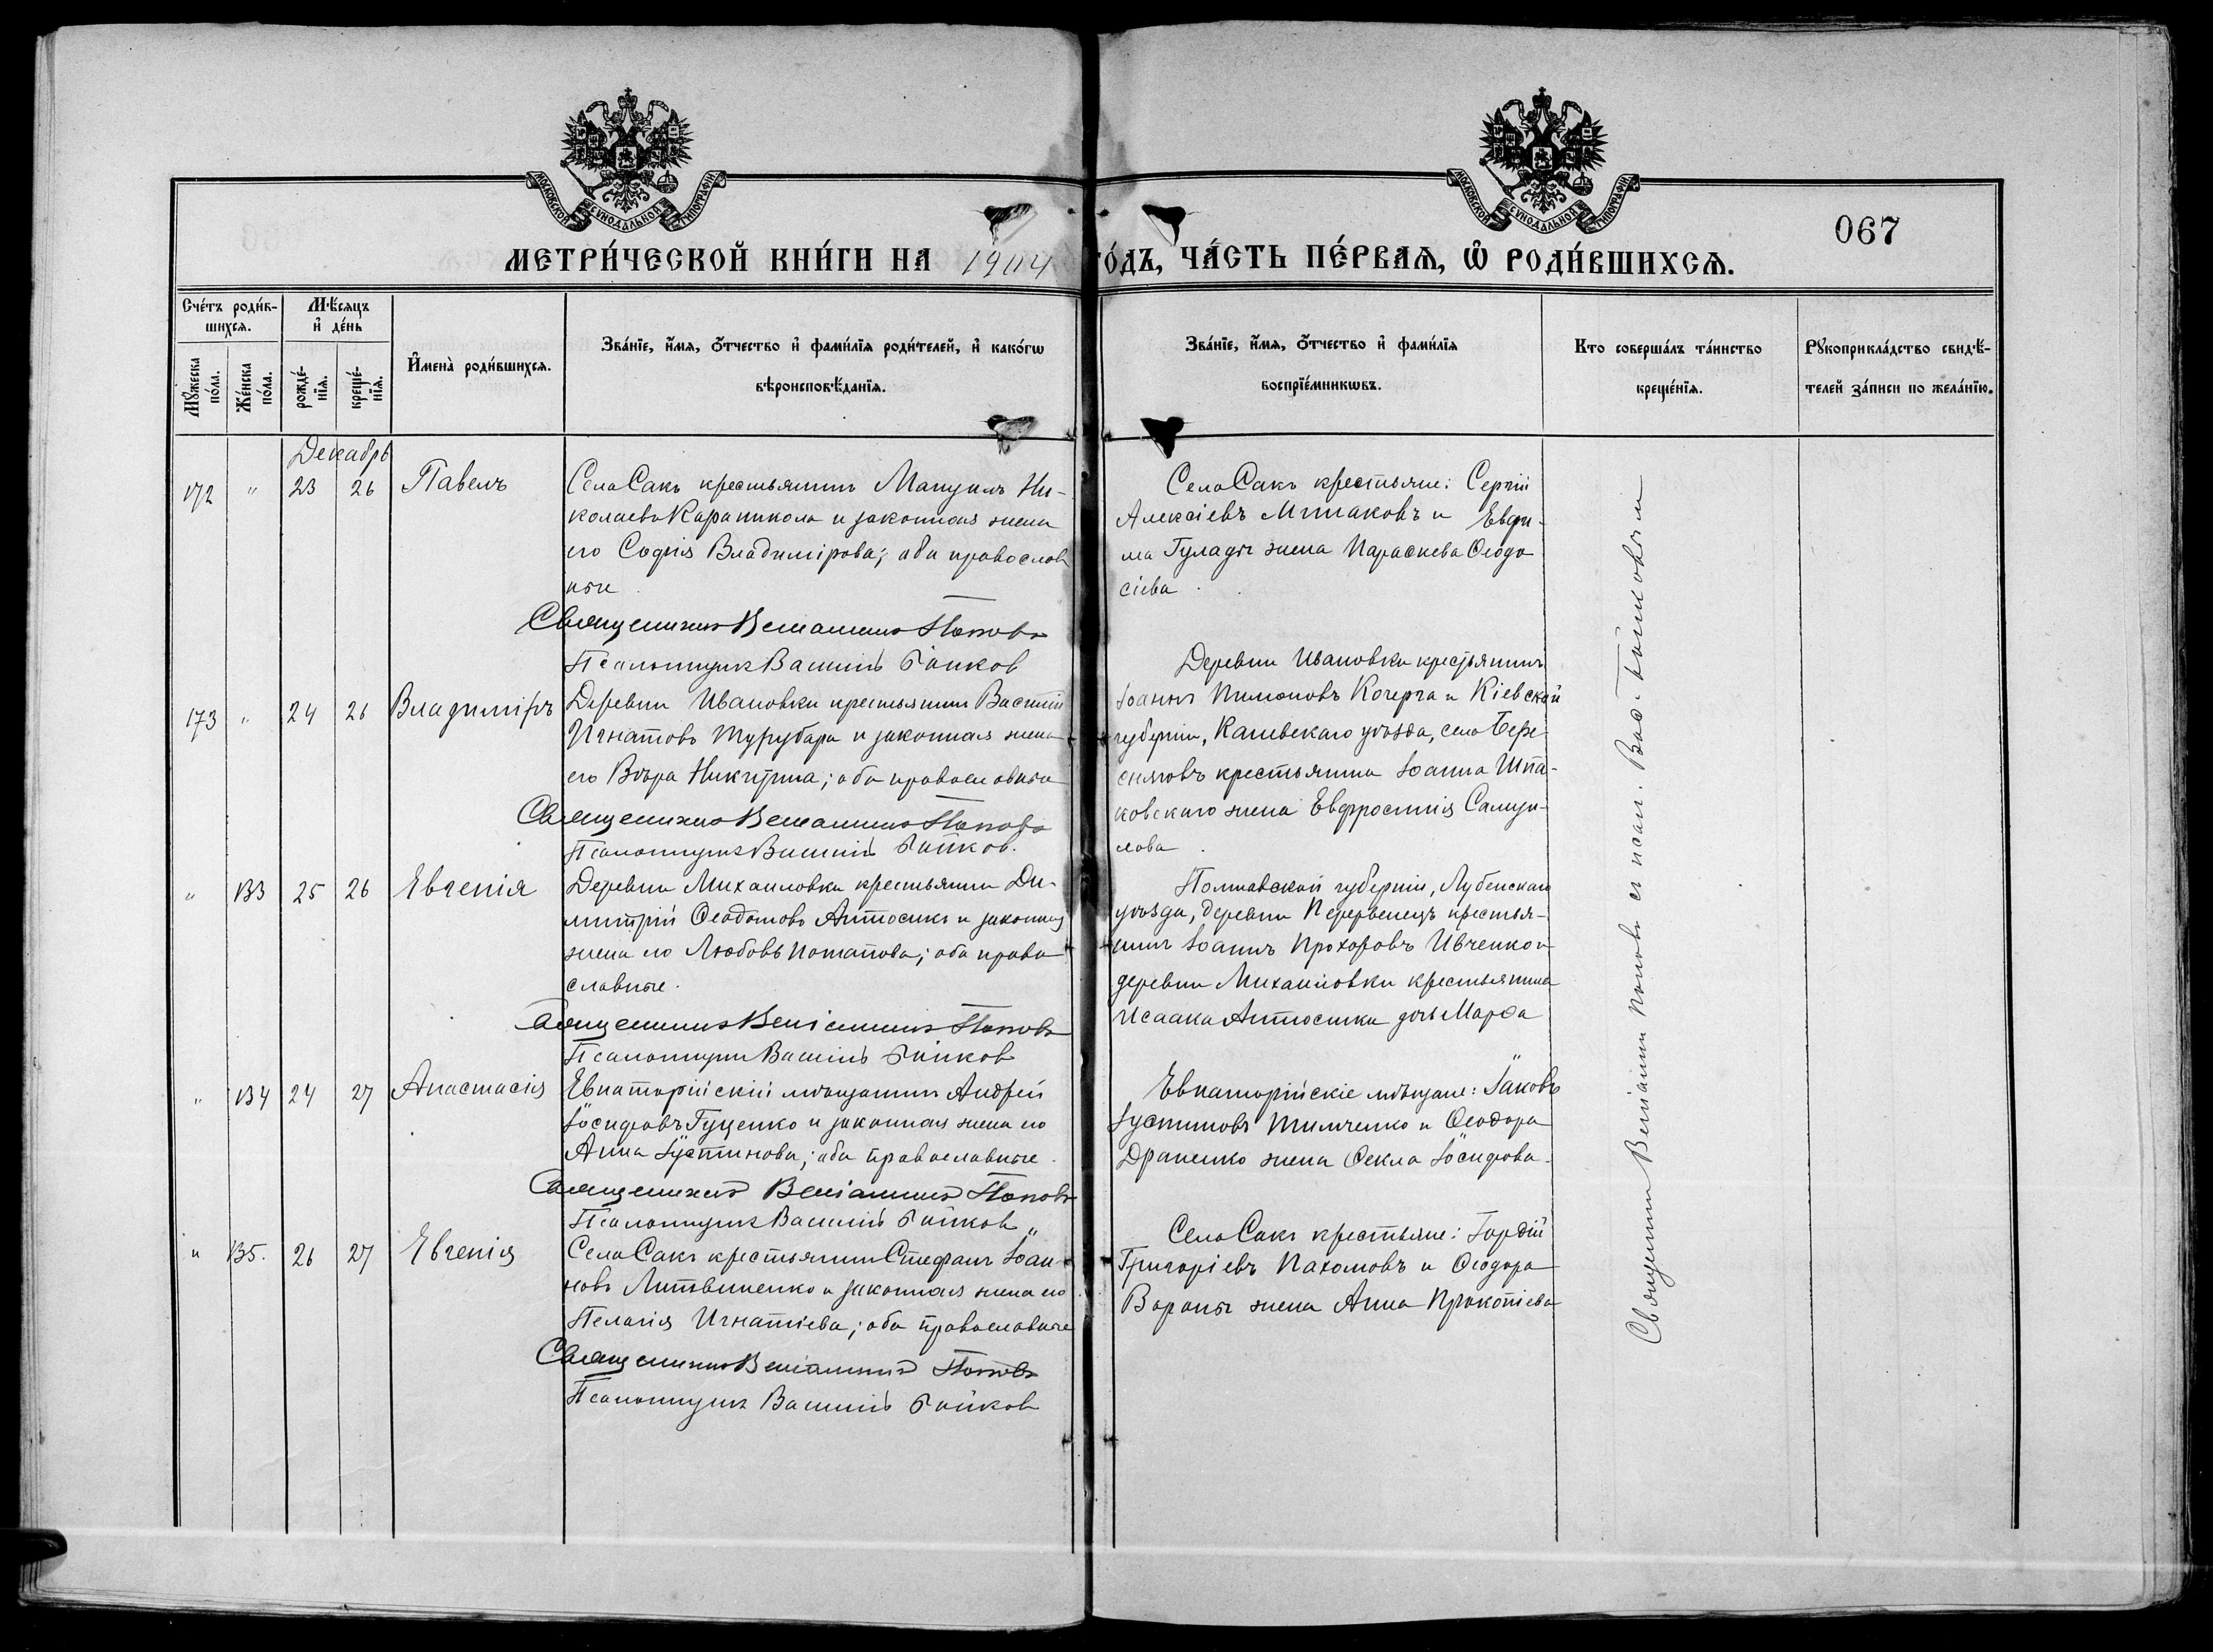 МОСКОВСКОЙ СѴНОДАЛЬНОЙ ТИПОГРАФІИ
МОСКОВСКОЙ СѴНОДАЛЬНОЙ ТИПОГРАФІИ
067
МЕТРИ́ЧЕСКОЙ КНИ́ГИ НА 1904 ГО́ДЪ, ЧА́СТЬ ПЕ́РВАѦ, Ѡ҆ РОДИ́ВШИХСѦ.
Сче́тъ роди́в-
шихсѧ.
Мꙋ́жеска
по́ла.
Же́нска
по́ла.
Мѣ́сѧцъ
и҆ де́нь
рожде́-
нїѧ.
креще́-
нїѧ.
И҆мена̀ роди́вшихсѧ.
Зва́нїе, и҆́мѧ, ѻ҆́тчество и҆ фамѝлїѧ роди́телей, и҆ како́гѡ
вѣроисповѣ́данїѧ.
Зва́нїе, и҆́мѧ, ѻ҆́тчество и҆ фами́лїѧ
воспрїе́мникѡвъ.
Кто соверша́лъ та́инство
креще́нїѧ.
Рꙋкоприкла́дство свидѣ́-
телей за́писи по жела́нїю.
Декабрь
172 " 23 26 Павелъ
Села Сакъ крестьянинъ Мануилъ Ни-
колаевъ Караникола и законная жена
его Софія Владимірова; оба православ
ные.
Священникъ Веніаминъ Поповъ
Псаломщикъ Василій Бойков
Села Сакъ крестьяне: Сергій
Алексіевъ Мишаковъ и Евфи-
ма Гулады жена Параскева Ѳеодо
сіева.
173 " 24 26 Владиміръ
Деревни Ивановки крестьянин Василій
Игнатовъ Турубара и законная жена
его Вѣра Никитина; оба православные
Священникъ Веніаминъ Поповъ
Псаломщикъ Василій Бойков.
Деревни Ивановки крестьянинъ
Іоаннъ Пимоновъ Кочерга и Кіевской
губерніи, Каневскаго уѣзда, села Бере-
сняговъ крестьянина Іоанна Шпа-
ковскаго жена Евфросинія Самуи-
лова.
" 133 25 26 Евгенія
Деревни Михаиловки крестьянин Ди-
митрій Ѳеодотовъ Антосикъ и законная
жена его Любовь Потапова; оба право
славные.
Священникъ Веніаминъ Поповъ
Псаломщикъ Василій Бойков
Полтавской губерніи, Лубенскаго
уѣзда, деревни Перервенецъ крестья-
нинъ Іоаннъ Прохоровъ Ивченко и
деревни Михаиловки крестьянина
Исаака Антосика дочь Марѳа
" 134 24 27 Анастасія
Евпаторійскій мѣщанинъ Андрей
Іосифовъ Гуценко и законная жена его
Анна Іустинова; оба православные.
Священникъ Веніаминъ Поповъ
Псаломщикъ Василій Бойков
Евпаторійскіе мѣщане: Іаковъ
Іустиновъ Тимченко и Ѳеодора
Драненко жена Ѳекла Іосифова.
" 135. 26 27 Евгенія
Села Сакъ крестьянин Стефанъ Іоан-
новъ Литвиненко и законная жена его
Пелагія Игнатіева; оба православные
Священникъ Веніаминъ Поповъ
Псаломщикъ Василій Бойков
Села Сакъ крестьяне: Гордій
Григоріевъ Пахомовъ и Ѳеодора
Вороны жена Анна Прокопіева
Священникъ Веніаминъ Поповъ съ псал. Вас. Бойковым